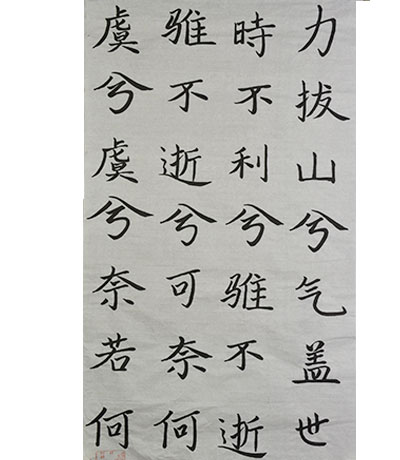 力拔山兮气盖世
時不利兮骓不逝
骓不逝兮可奈何
虞兮虞兮奈若何